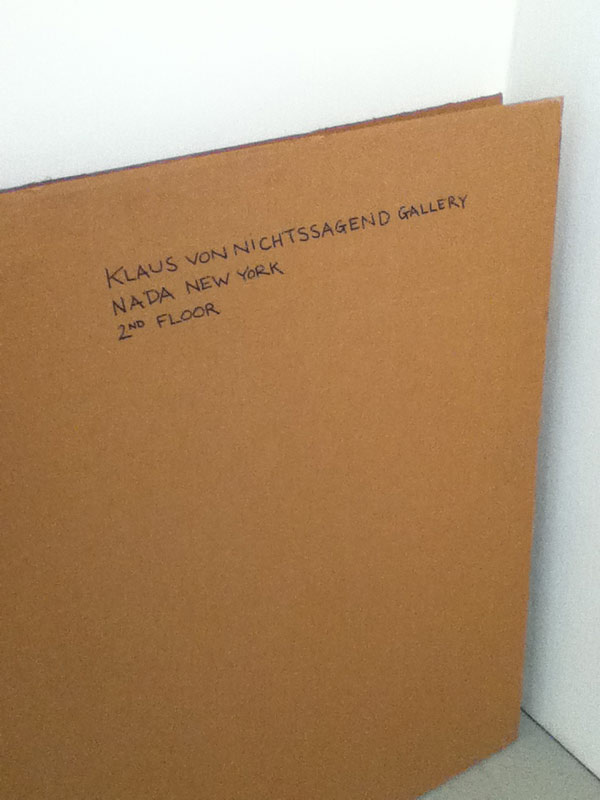 KLAUS VON NICHTSSAGEND GALLERY
NADA NEW YORK
2ND FLOOR